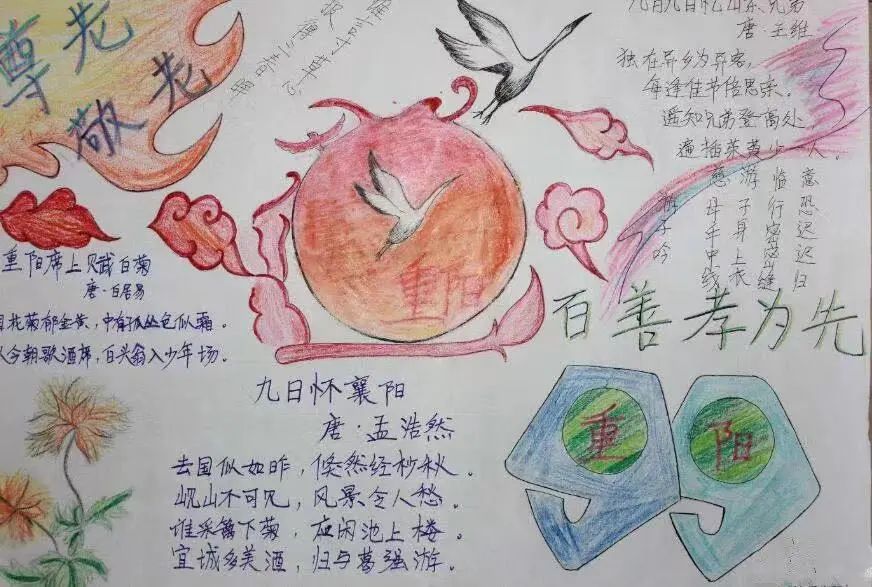 尊老
敬老
谁言寸草心
报得三春晖
九月九日忆山东兄弟
唐·王维
独在异乡为异客，
每逢佳节倍思亲。
遥知兄弟登高处，
遍插茱萸少一人。
游子吟
慈母手中线
游子身上衣
临行密密缝
意恐迟迟归
重阳席上赋白菊
唐·白居易
花菊郁金黄，中有孤丛色似霜。
今朝歌酒席，白头翁入少年场。
重阳
百善孝为先
九日怀襄阳
唐·孟浩然
去国似如昨，倏然经杪秋。
岘山不可见，风景令人愁。
谁采篱下菊，应闲池上楼。
宜城多美酒，归与葛强游。
重阳